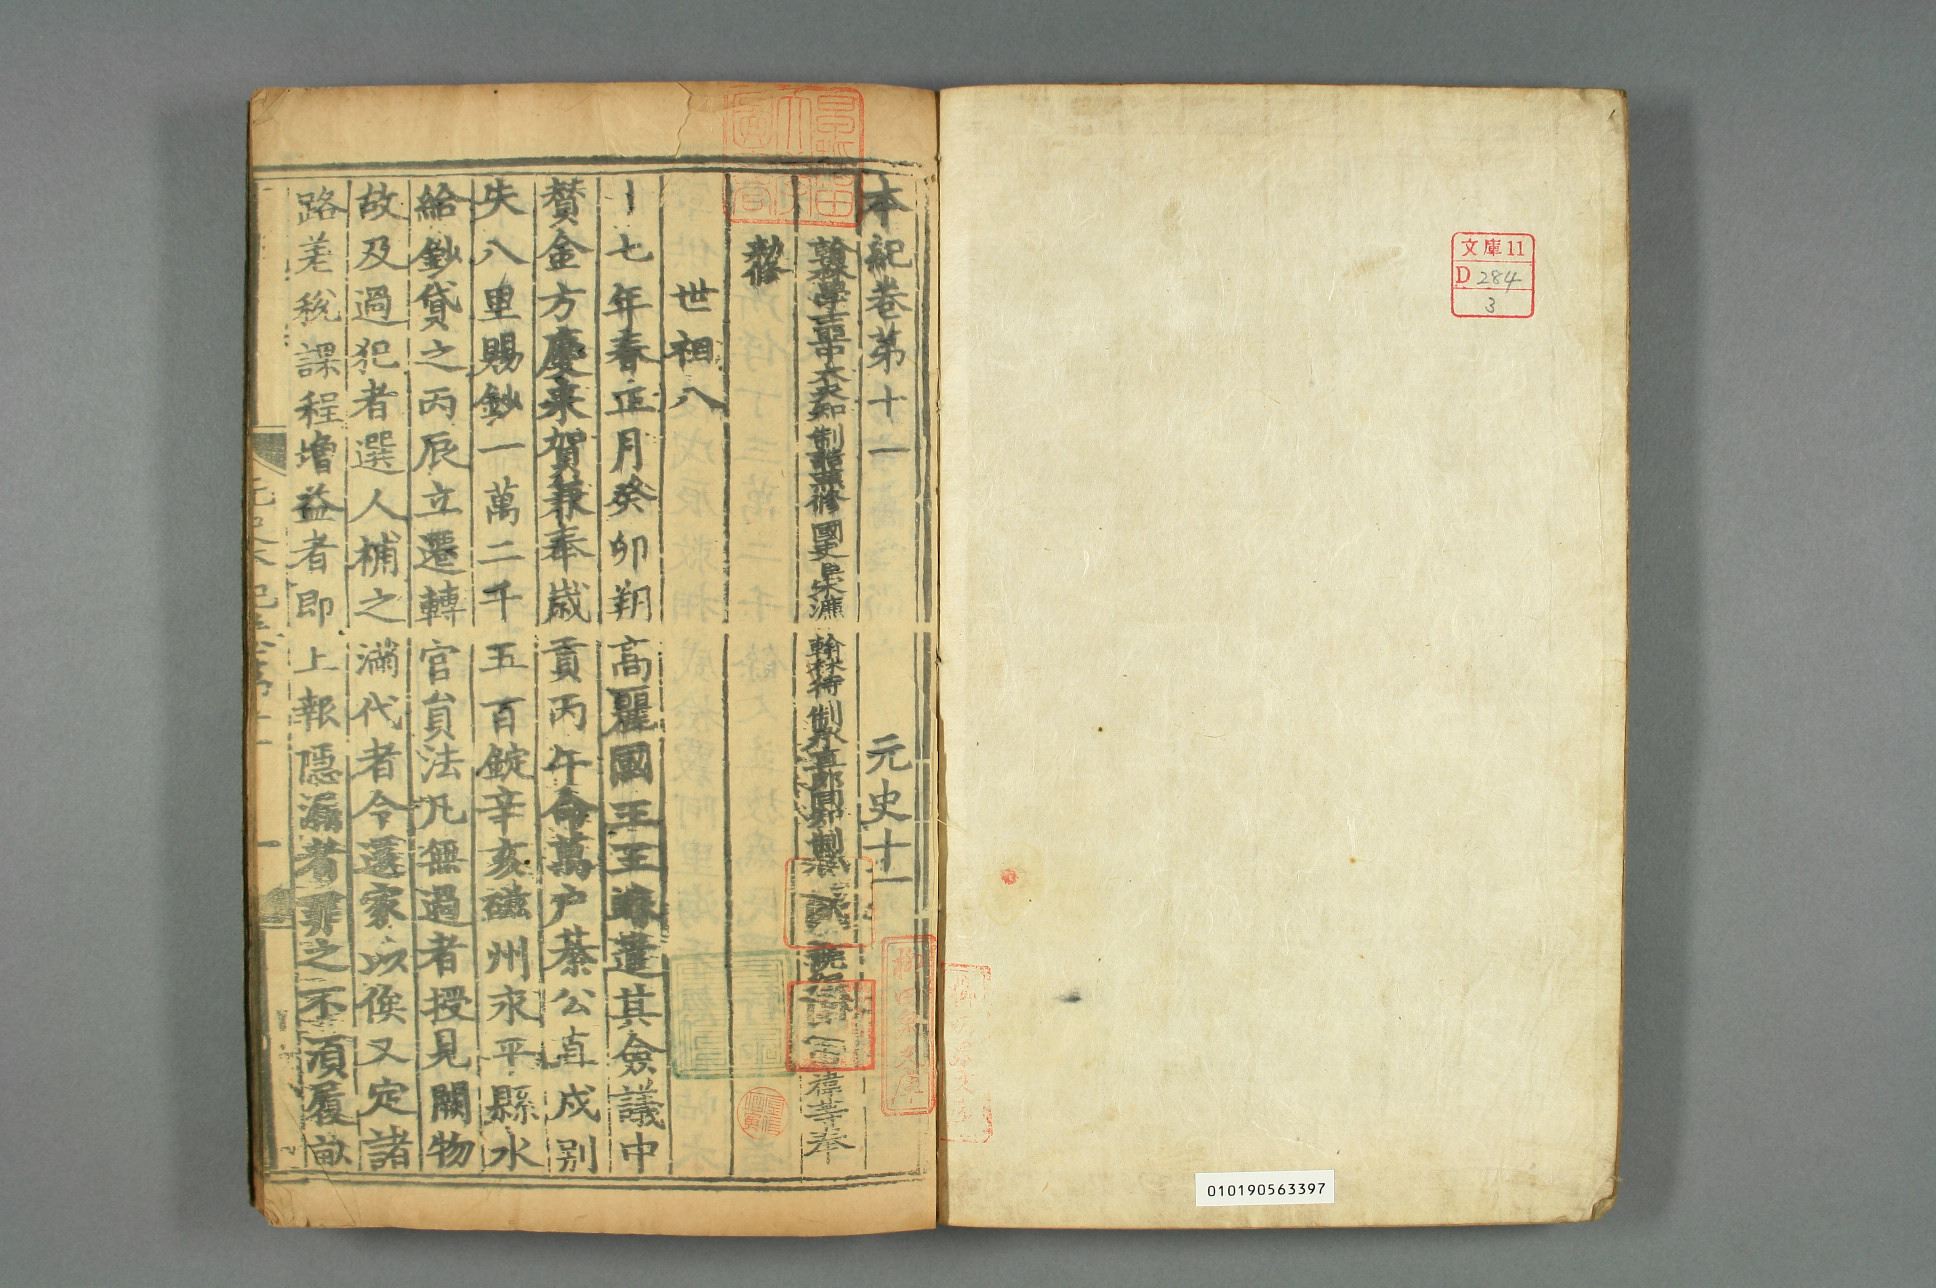 文庫11
D 284
3
010190563397
本紀卷第十一 元史十一
翰林學士亞中大夫知制誥兼修國史臣宋濂 翰林待制承直郎同知制誥兼國史院編修官臣王禕等奉
勑修
世祖八
十七年春正月癸卯朔高麗國王王賰遣其僉議中
贊金方慶來賀兼奉歲貢丙午命萬戶綦公直戍別
失八里賜鈔一萬二千五百錠辛亥磁州永平縣水
給鈔貸之丙辰立遷轉官員法凡無過者授見闕物
故及過犯者選人補之滿代者令還家以俟又定諸
路差稅課程增益者即上報隱漏者罪之不須履畝